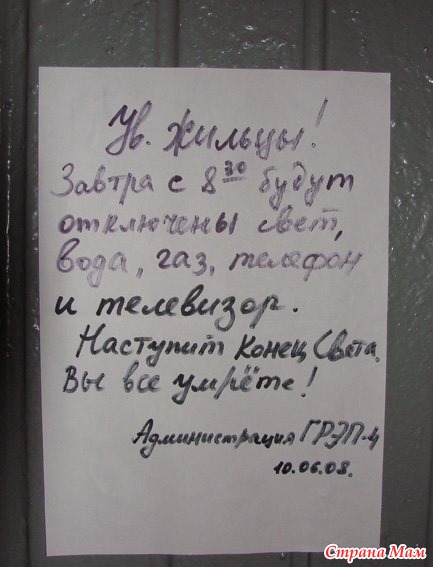 Ув. жильцы!
Завтра с 8³⁰ будут
отключены свет,
вода, газ, телефон
и телевизор.
Наступит Конец Света.
Вы все умрёте!
Администрация ГРЭП-4
10.06.08.
Страна Мам